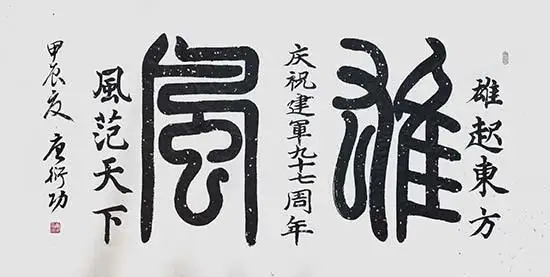 雄起東方
雄
庆祝建軍九十七周年
風
風范天下
甲辰夏 唐衍功